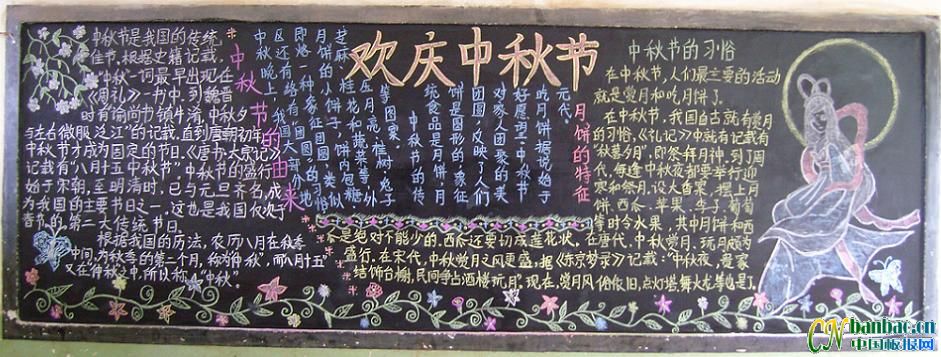 欢庆中秋节
中秋节的由来
中秋节是我国的传统
佳节。根据史籍记载，
“中秋”一词最早出现在
《周礼》一书中。到魏晋
时，有“谕尚书镇牛渚，中秋夕
与左右微服泛江”的记载。直到唐朝初年，
中秋节才成为固定的节日。《唐书·太宗记》
记载有“八月十五中秋节”。中秋节的盛行
始于宋朝，至明清时，已与元旦齐名，成
为我国的主要节日之一。这也是我国仅次于
春节的第二大传统节日。
根据我国的历法，农历八月在秋季
中间，为秋季的第二个月，称为“仲秋”，而八月十五
又在“仲秋”之中，所以称“中秋”。
月饼的特征
元代。
的月饼据说始于
好愿望。中秋节
对家人团聚的美
团圆，反映了人们
饼是圆形的，象征
统食品是月饼，月
中秋节的传
等图案。
压月亮、桂树、兔子
芝麻、桂花和蔬菜等，外
月饼的小饼子，饼内包糖、
即烙一种象征团圆、类似
区还有烙“团圆”的习俗，
中秋晚上，我国大部分地
中秋节的习俗
在中秋节，人们最主要的活动
就是赏月和吃月饼了。
在中秋节，我国自古就有赏月
的习俗，《礼记》中就有记载有
“秋暮夕月”，即祭拜月神。到了周
代，每逢中秋夜都要举行迎
寒和祭月。设大香案，摆上月
饼、西瓜、苹果、李子、葡萄
等时令水果，其中月饼和西
瓜是绝对不能少的。西瓜还要切成莲花状。在唐代，中秋赏月、玩月颇为
盛行。在宋代，中秋赏月之风更盛，据《东京梦录》记载：“中秋夜，贵家
结饰台榭，民间争占酒楼玩月”。现在，赏月风俗依旧，点灯塔、舞火龙等也是了。
CN banbao.cn
中国板报网